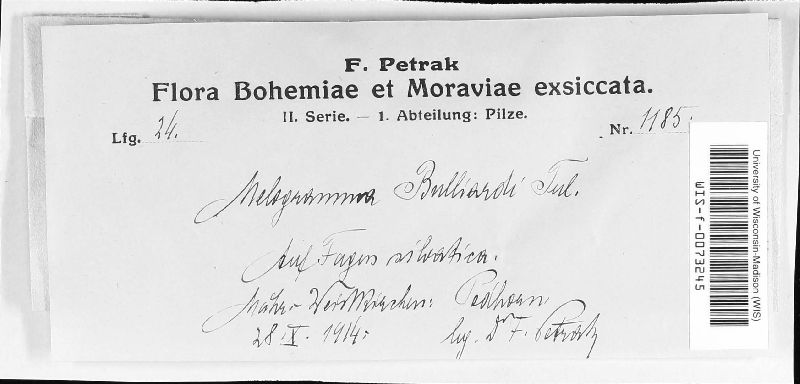 F. Petrak
Flora Bohemiae et Moraviae exsiccata.
II. Serie. — 1. Abteilung: Pilze.
Lfg. 24.
Nr. 1185.
Melogramma Bulliardi Tul.
Auf Fagus silvatica.
Mähr. Weisskirchen: Podhorn
28. V. 1914.
lg. Dr F. Petrak
University of Wisconsin-Madison (WIS)
WIS-f-0073245